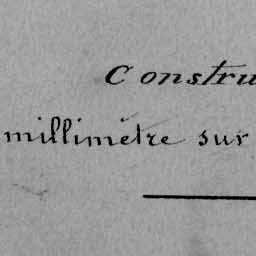 Constru
millimètre sur